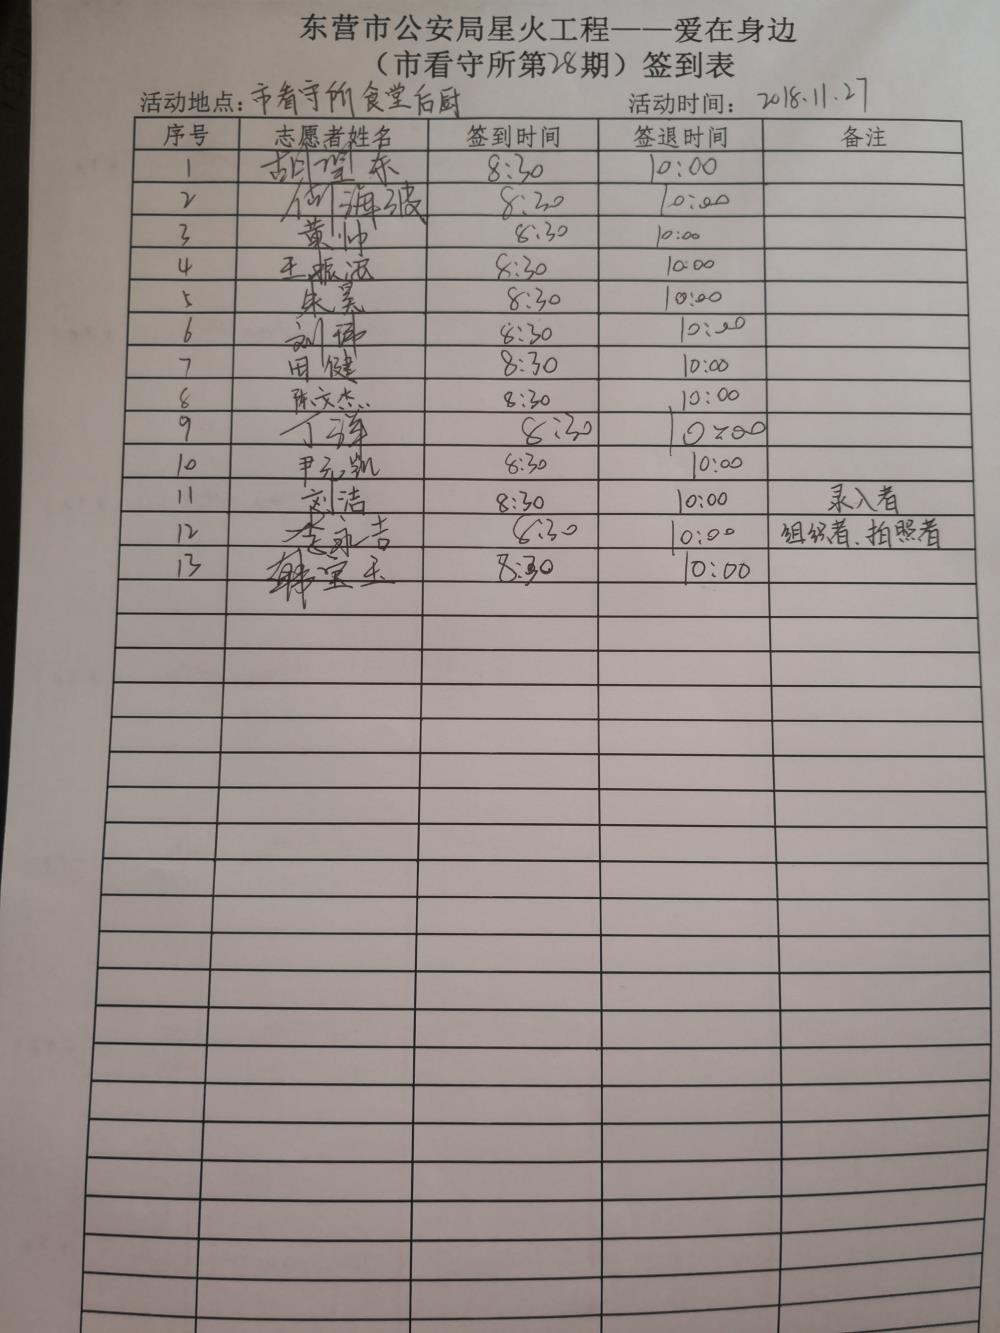 东营市公安局星火工程——爱在身边
（市看守所第28期）签到表
活动地点：市看守所食堂后厨 活动时间：2018.11.27
序号 志愿者姓名 签到时间 签退时间 备注
1 胡 东 8:30 10:00
2 海波 8:30 10:00
3 黄帅 8:30 10:00
4 王振 8:30 10:00
5 朱昊 8:30 10:00
6 刘 8:30 10:00
7 田健 8:30 10:00
8 陈文杰 8:30 10:00
9 丁 8:30 10:00
10 尹 凯 8:30 10:00
11 刘洁 8:30 10:00 录入者
12 李永吉 8:30 10:00 组织者、拍照者
13 韩宝玉 8:30 10:00